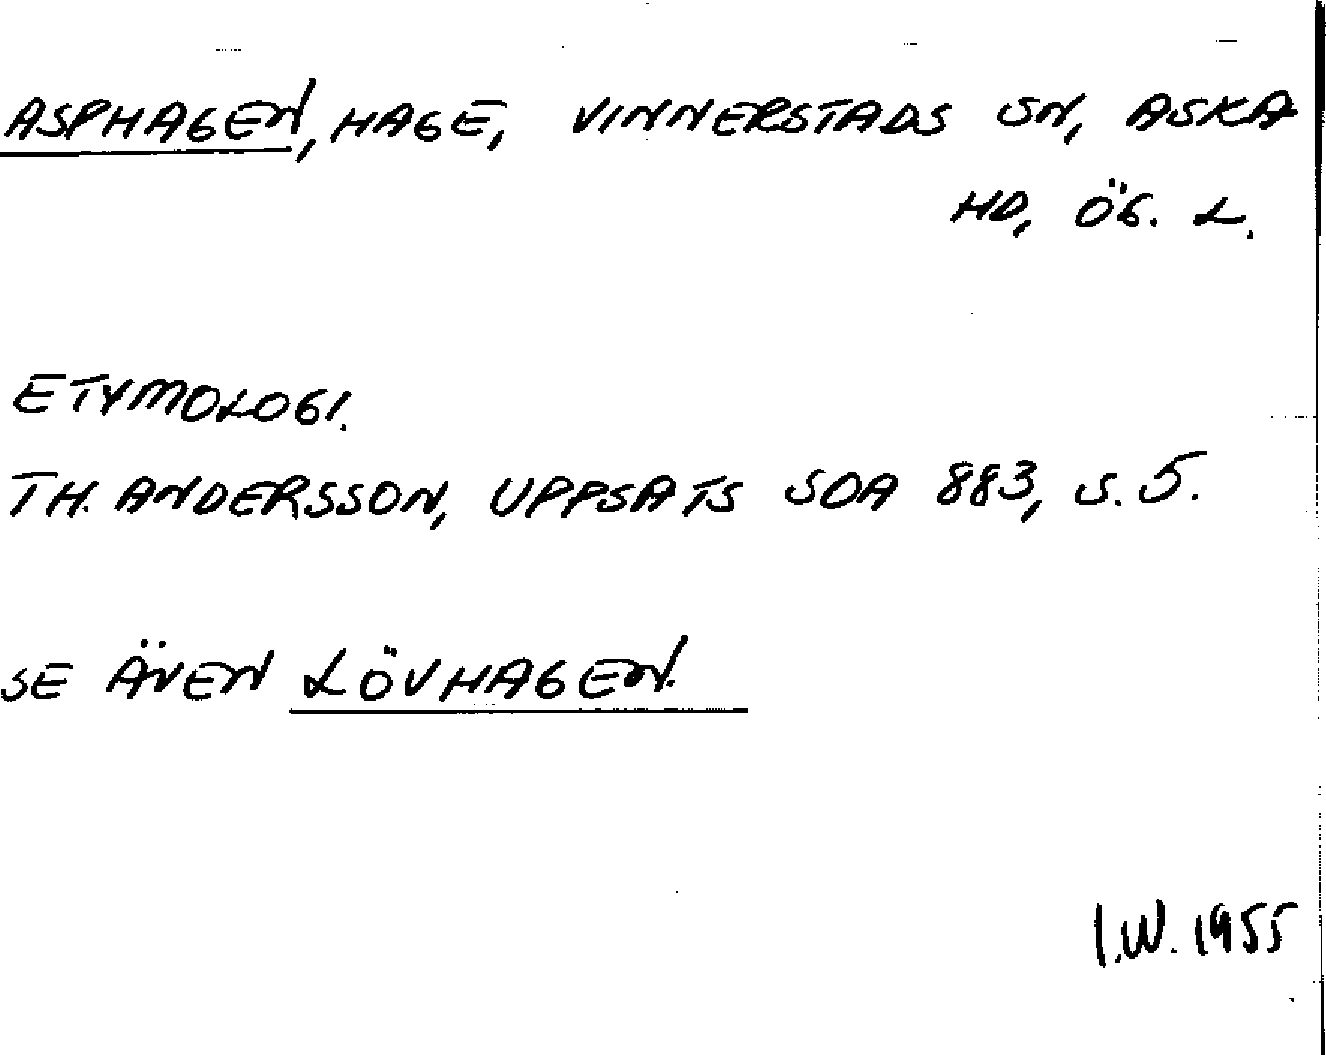 ASPHAGEN, HAGE, VINNERSTADS SN, ASKA
HD, ÖG. L.
ETYMOLOGI.
TH. ANDERSSON, UPPSATS SOA 883, S. 5.
SE ÄVEN LÖVHAGEN.
I.W. 1955